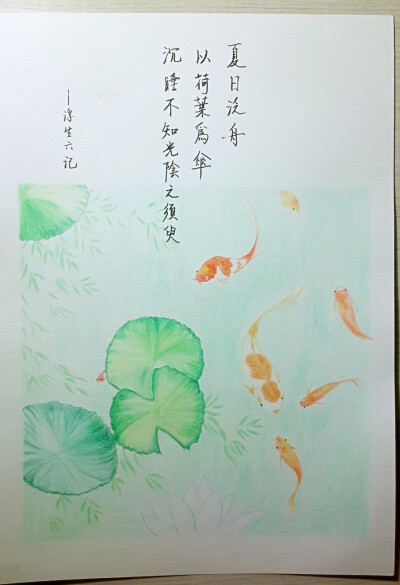 夏日泛舟
以荷葉爲傘
沉睡不知光陰之須臾
—浮生六记